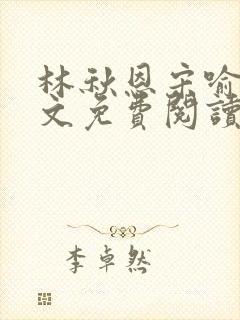 林秋恩宋喻
文免費閱讀
李卓然